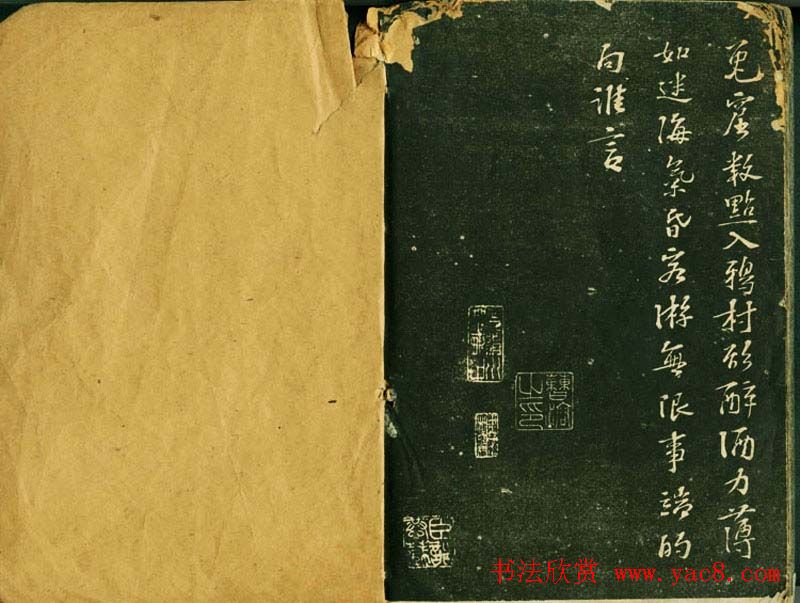 兔窟數點入鴉村欲醉酒力薄
如迷海氣昏客游無限事端的
向誰言
书法欣赏 www.yac8.com